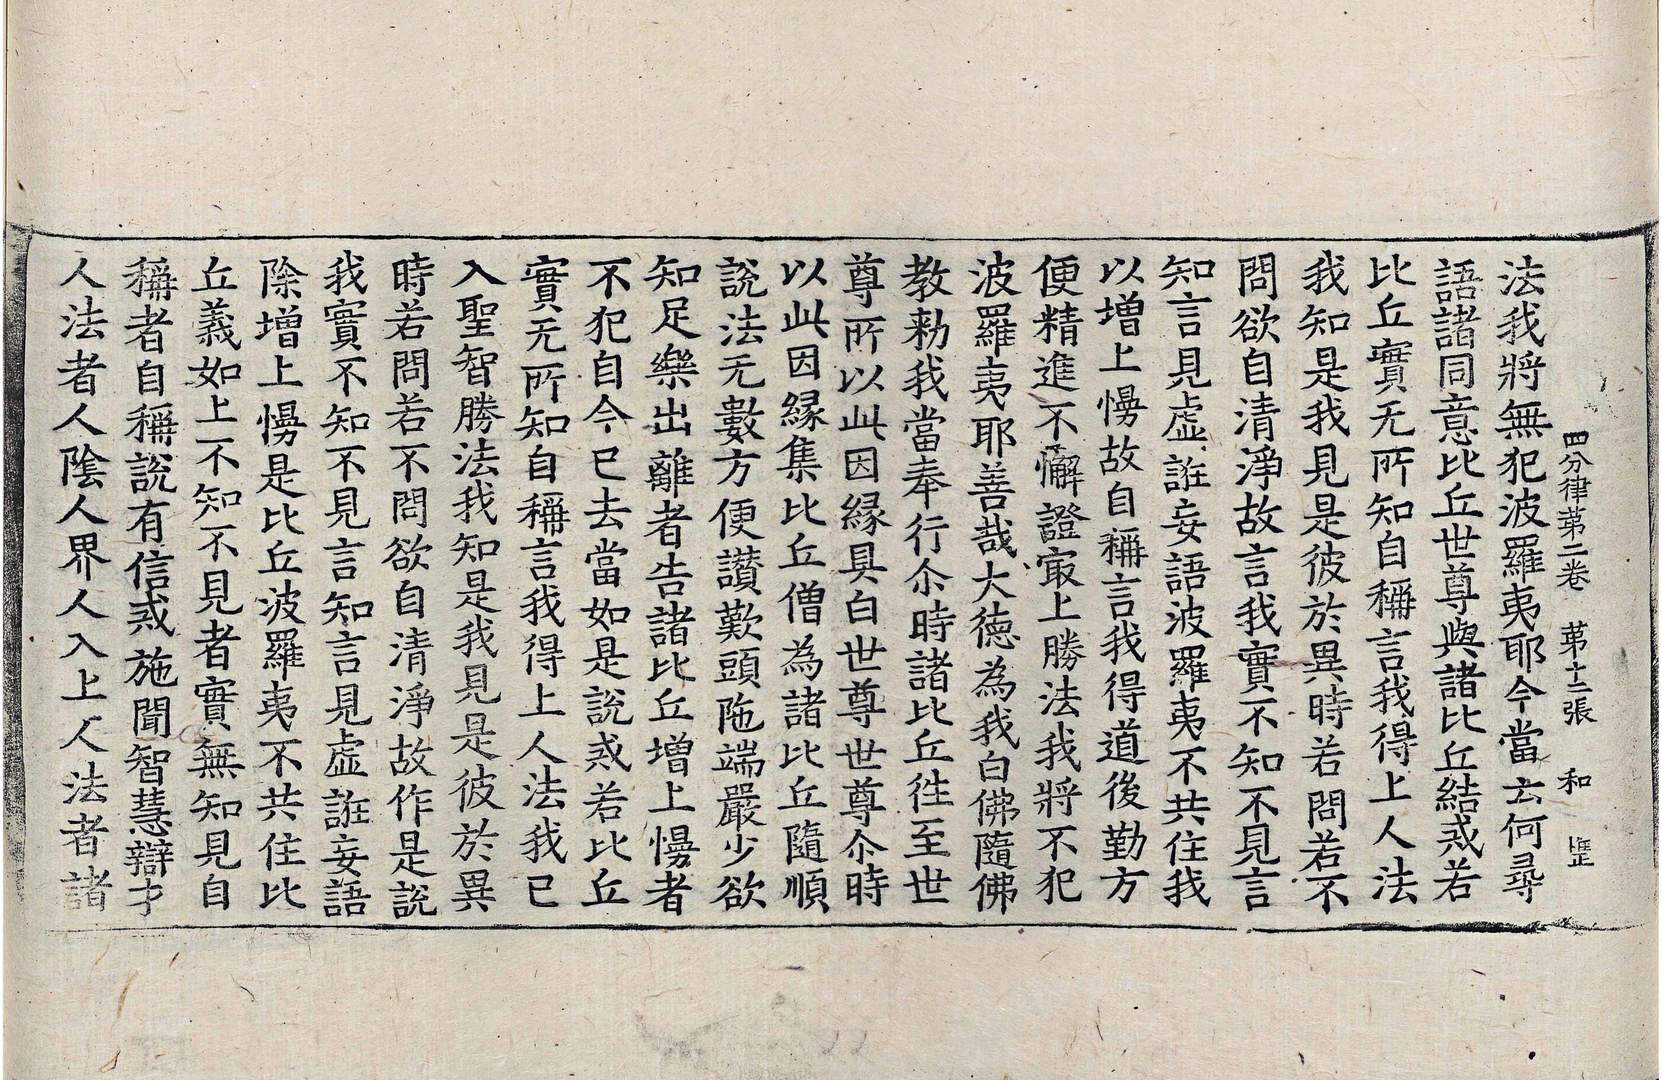 四分律第二卷 第十二張 和
法我將無犯波羅夷耶今當云何尋
語諸同意比丘世尊與諸比丘結戒若
比丘實无所知自稱言我得上人法
我知是我見是彼於異時若問若不
問欲自清淨故言我實不知不見言
知言見虛誑妄語波羅夷不共住我
以增上慢故自稱言我得道後勤方
便精進不懈證㝡上勝法我將不犯
波羅夷耶善哉大德為我白佛隨佛
教勑我當奉行尒時諸比丘往至世
尊所以此因緣具白世尊世尊尒時
以此因緣集比丘僧為諸比丘隨順
說法无數方便讃歎頭陁端嚴少欲
知足樂出離者告諸比丘增上慢者
不犯自今已去當如是說戒若比丘
實无所知自稱言我得上人法我已
入聖智勝法我知是我見是彼於異
時若問若不問欲自清淨故作是說
我實不知不見言知言見虛誑妄語
除增上慢是比丘波羅夷不共住比
丘義如上不知不見者實無知見自
稱者自稱說有信戒施聞智慧辯才
人法者人陰人界人入上人法者諸